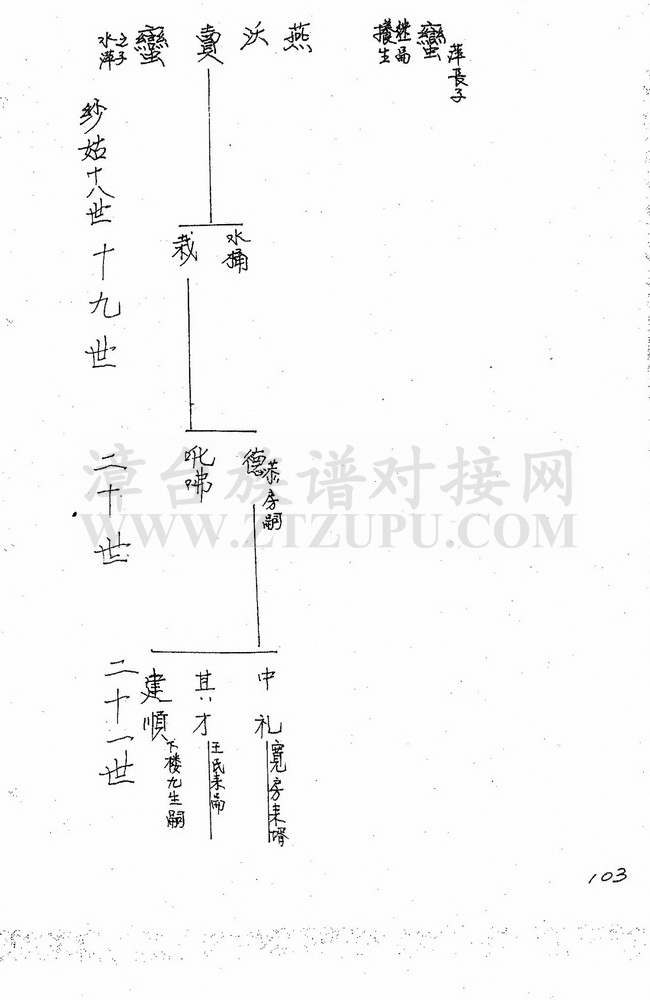 萍長子
蠻
继嵩
攓生
燕
沃
賣
蠻
之子
水萍
紗姑十八世
水桶
栽
十九世
德
恭房嗣
吡咈
二十世
中礼
寬房來壻
其才
王民来嵩
建順
下楼九生嗣
二十一世
漳台族谱对接网
WWW.ZTZUPU.COM
103